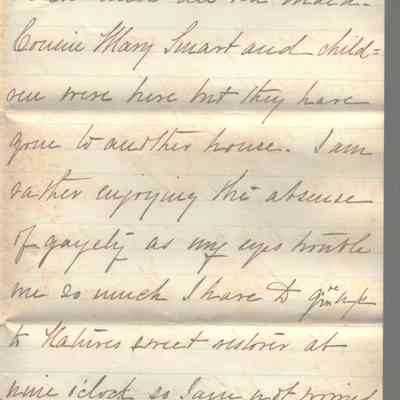 Cousin Mary Smart and child=
ren were here but they have
gone to another house. I am
rather enjoying this absence
of gayety as my eyes trouble
me so much I have to give up
to Natures sweet restorer at
nine o'clock so I am not